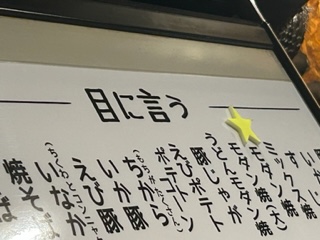 目に言う
ミックス焼
モダン焼(大)
うどんモダン焼
豚じゃが
えびポテト
ポテトーン
ちから
いか豚
えび豚
いなか
焼そば